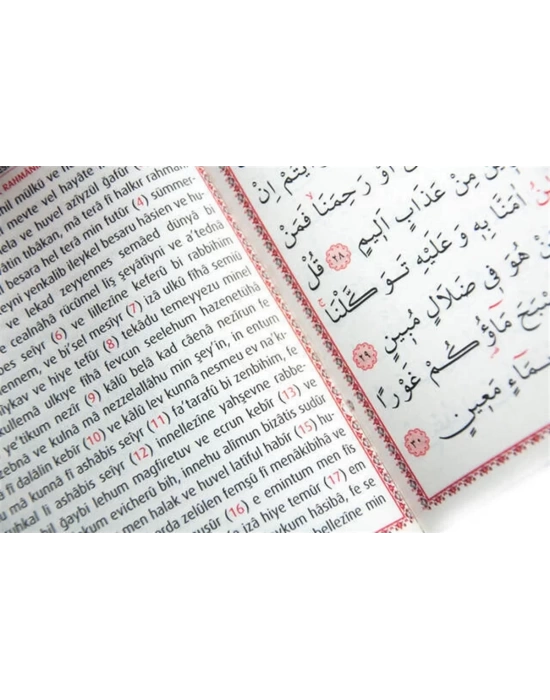 RAHMANİ
mil mülkü ve
meyte vel hayâte
ela ve huvel azîyzül ğafûr
âtin tıbâkan, mâ terâ fî halkır rahman
l besara hel terâ min futûr (4) sümmer-
eyni yenkalib ileykel besaru hâsien ve hu-
ve lekad zeyyennes semâed dünyâ bi
cealnâhâ rücûmel liş şeyâtiyni ve a'tednâ
bes seîyr (6) ve lillezîne keferû bi rabbihim
ennem, ve bi'sel mesîyr (7) izâ ülkû fîhâ semiû
hîykav ve hiye tefûr (8) tekâdu temeyyezu minel
kullemâ ulkıye fîhâ fevcun seelehum hazenetühâ
e'tikum nezîr (9) kâlû belâ kad câenâ nezîrun fe
zebnâ ve kulnâ mâ nezzelallâhu min şey'in, in entum
â fî dalâlin kebîr (10) ve kâlû lev kunnâ nesmeu ev na'k-
mâ kunnâ fî ashâbis seîyr (11) fa'terafû bi zenbihim, fe
uhkal li ashâbis seîyr (12) innellezîne yahşevne rabbe-
bil ğaybi lehum mağfiretuv ve ecrun kebîr (13) ve
kum evicherû bih, innehu alîmun bizâtis sudûr
men halak ve huvel latîful habîr (15) hu-
arda zelûlen femşû fî menâkibihâ ve
uşûr (16) e emintum men fis
izâ hiye temûr (17) em
ykum hâsibâ, fe se
bellezîne min
يْتُمْ اِنْ
اَوْ رَحِمَنَا فَمَنْ
مِنْ عَذَابٍ اَلٖيمٍ ﴿٢٨﴾ قُلْ
اٰمَنَّا بِهٖ وَعَلَيْهِ تَوَكَّلْنَا
مَنْ هُوَ فٖي ضَلَالٍ مُبٖينٍ ﴿٢٩﴾
صْبَحَ مَٓاؤُ۬كُمْ غَوْرًا
بِمَٓاءٍ مَعٖينٍ ﴿٣٠﴾